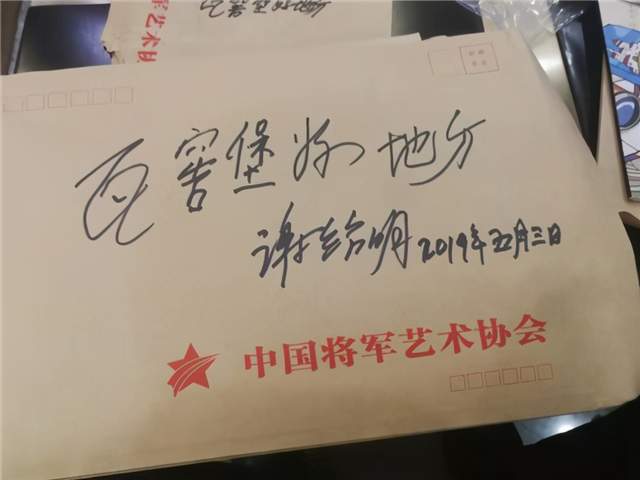 军艺术
瓦窑堡好地方
谢绍明 2019年五月三日
中国将军艺术协会